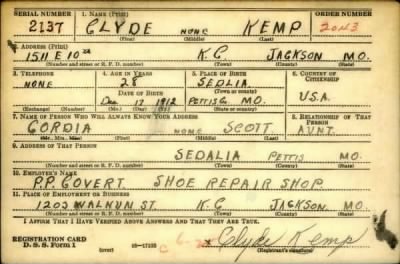 SERIAL NUMBER 1. NAME (Print) ORDER NUMBER
2137 CLYDE NONE KEMP 2043
(First) (Middle) (Last)
2. ADDRESS (Print)
1511 E 10TH K.C. JACKSON MO.
(Number and street or R. F. D. number) (Town) (County) (State)
3. TELEPHONE 4. AGE IN YEARS 5. PLACE OF BIRTH 6. COUNTRY OF CITIZENSHIP
NONE 28 SEDLIA
DATE OF BIRTH (Town or county)
DEC 17 1912 PETTIS MO. U.S.A.
(Exchange) (Number) (Mo.) (Day) (Yr.) (State or country)
7. NAME OF PERSON WHO WILL ALWAYS KNOW YOUR ADDRESS 8. RELATIONSHIP OF THAT PERSON
CORDIA NONE SCOTT AUNT.
(Mr., Mrs., Miss) (First) (Middle) (Last)
9. ADDRESS OF THAT PERSON
SEDALIA PETTIS MO.
(Number and street or R. F. D. number) (Town) (County) (State)
10. EMPLOYER'S NAME
P.P. COVERT SHOE REPAIR SHOP
11. PLACE OF EMPLOYMENT OR BUSINESS
1203 WALNUN ST. K.C. JACKSON MO.
(Number and street or R. F. D. number) (Town) (County) (State)
I AFFIRM THAT I HAVE VERIFIED ABOVE ANSWERS AND THAT THEY ARE TRUE.
REGISTRATION CARD
D. S. S. Form 1 16-17105 Clyde Kemp
(Registrant's signature)